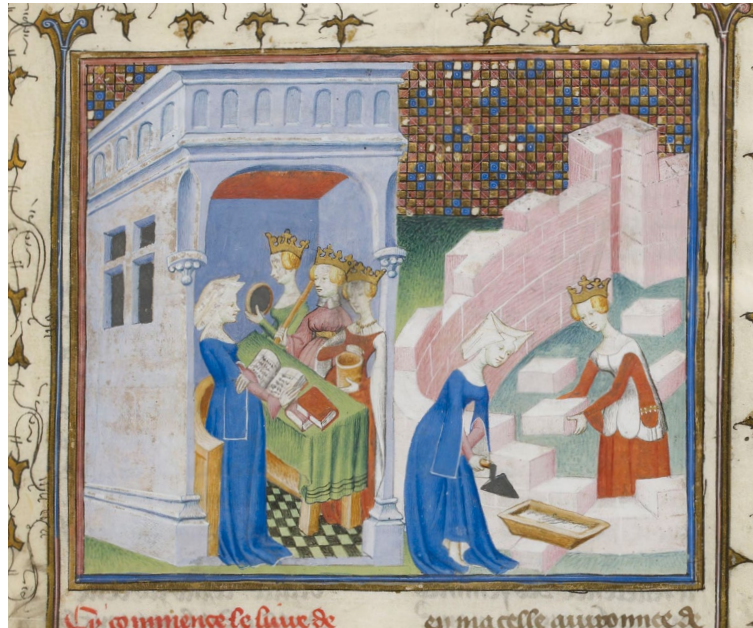 Cy commence le liure de
en ma celle auironnee de